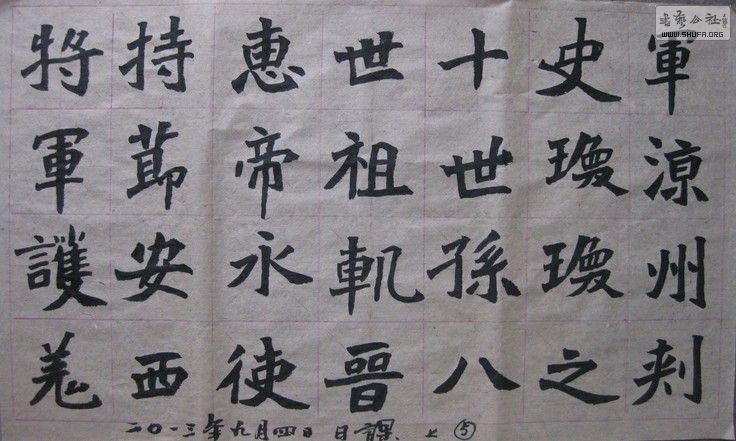 軍涼州刺
史瓊瓊之
十世孫八
世祖軌晉
惠帝永使
持莭安西
將軍護羌
二〇一三年九月四日 日課 上 ⑤
書藝公社
WWW.SHUFA.ORG